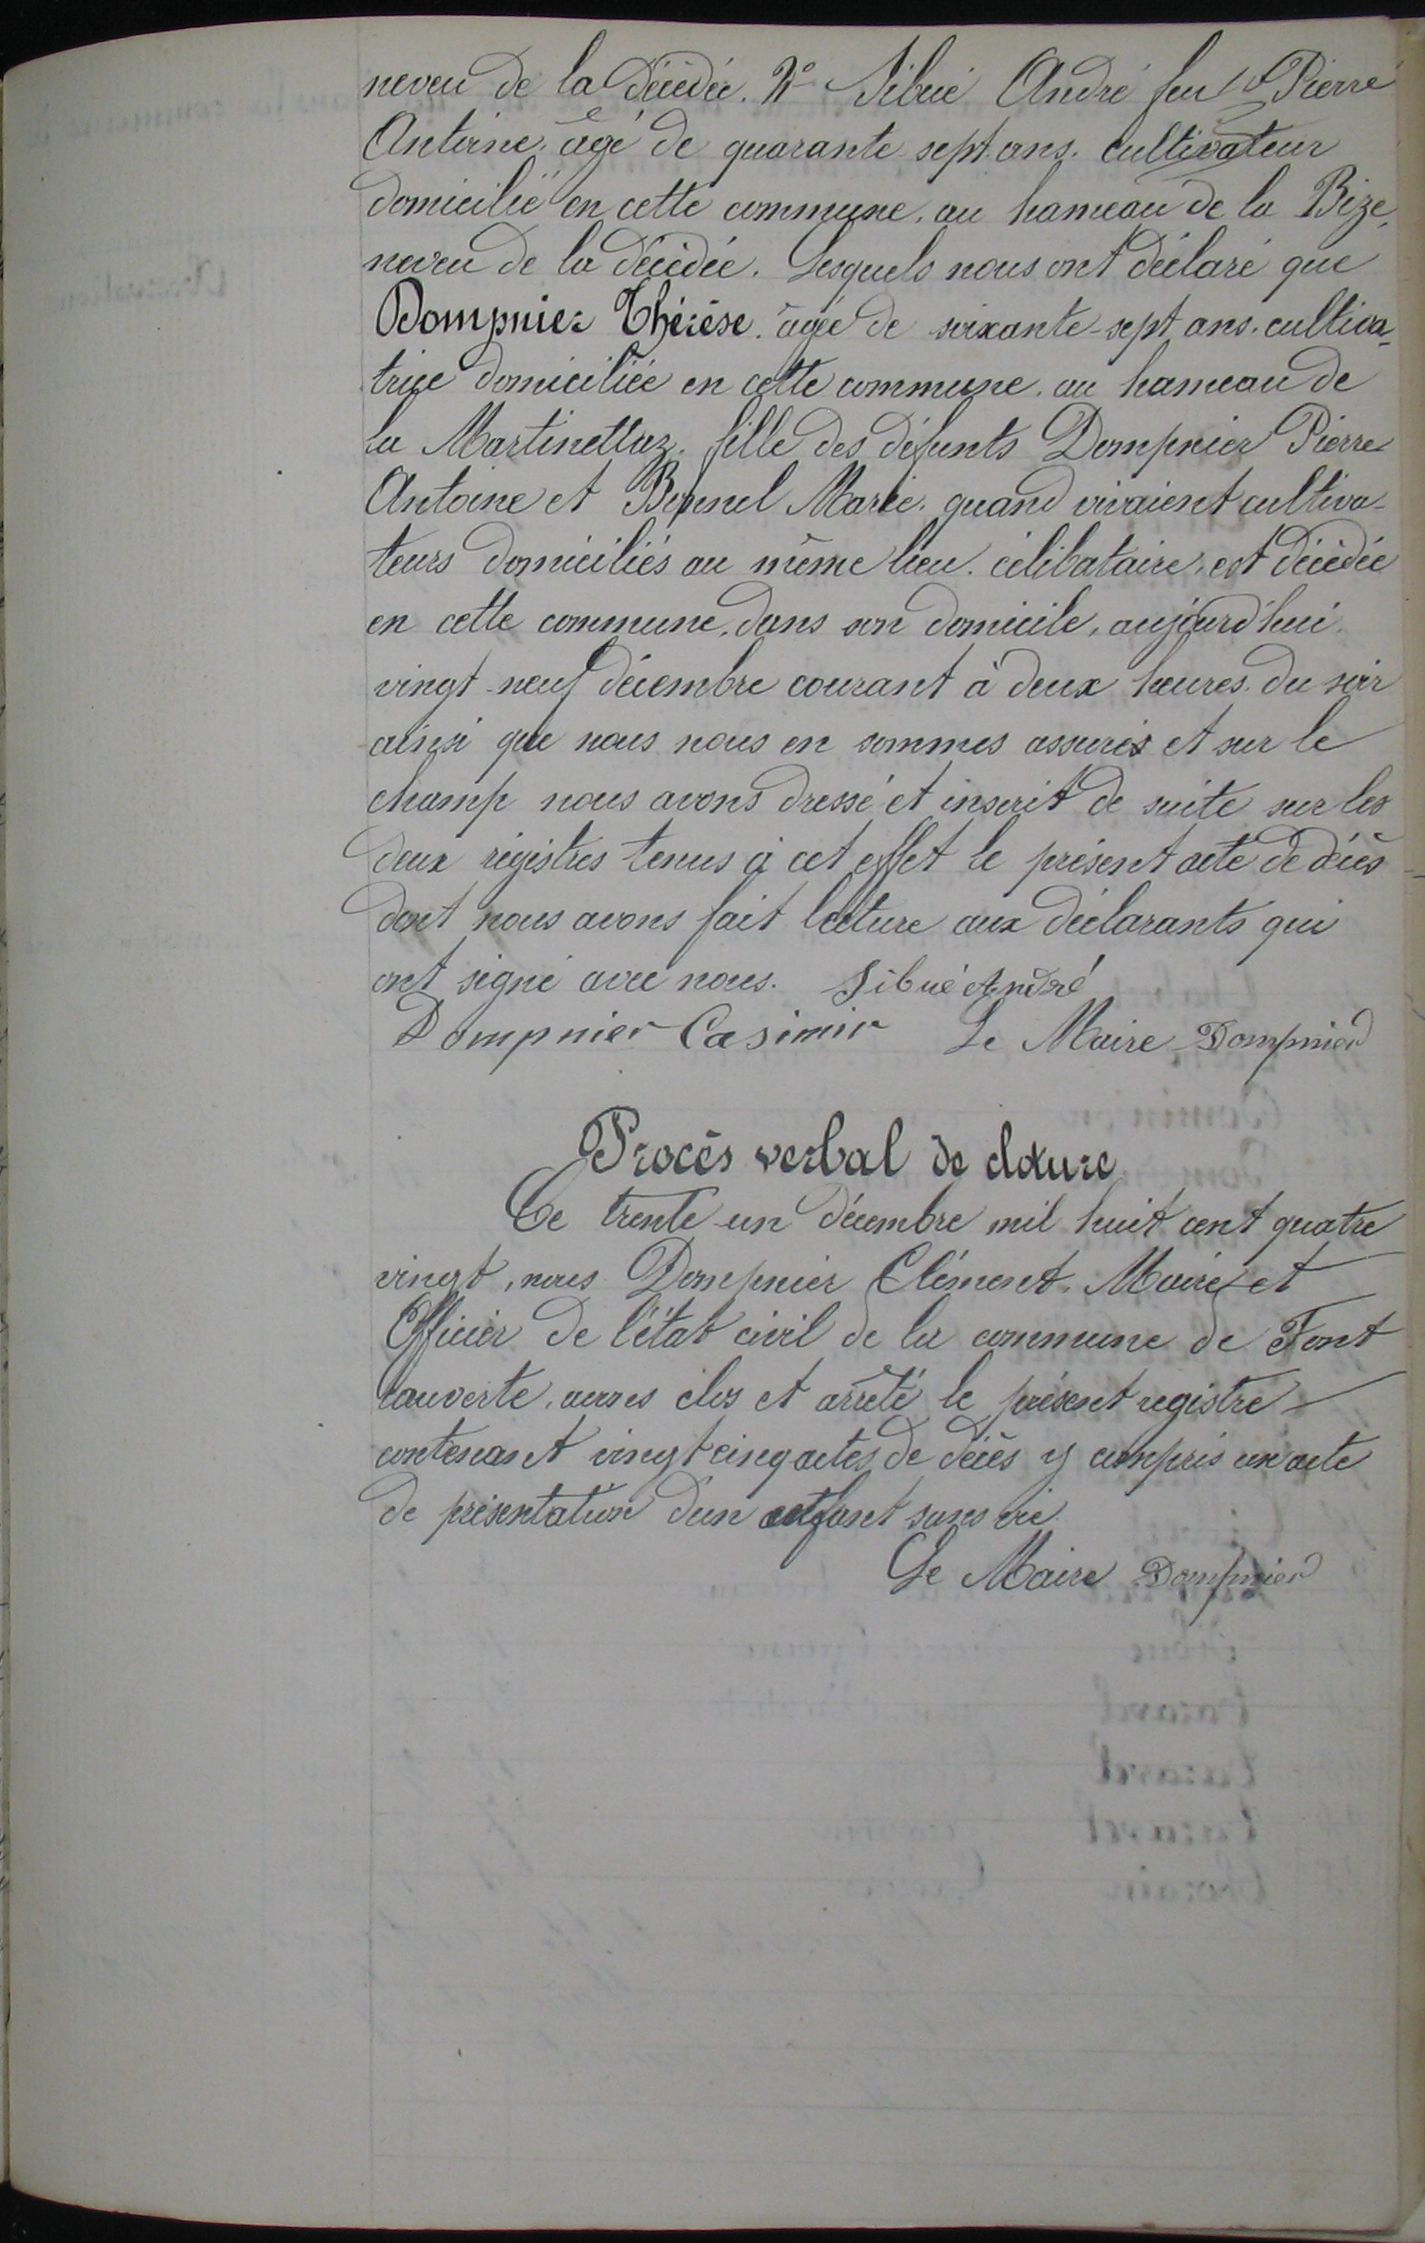 neveu de la décédée. 2° Sibué André feu Pierre
Antoine. âgé de quarante sept ans. cultivateur
domicilié en cette commune. au hameau de la Bize,
neveu de la décédée. Lesquels nous ont déclaré que
Dompnier Thérèse. âgée de soixante-sept ans. cultiva-
trice domiciliée en cette commune. au hameau de
la Martinettaz. fille des défunts Dompnier Pierre
Antoine et Marie. quand vivaient cultiva-
teurs domiciliés au même lieu. célibataire, est décédée
en cette commune, dans son domicile, aujourd'hui.
vingt-neuf décembre courant à deux heures. du soir
ainsi que nous nous en sommes assurés et sur le
champ nous avons dressé et inscrit de suite sur les
deux régistres tenus à cet effet le présent acte de décès
dont nous avons fait lecture aux déclarants qui
ont signé avec nous. Sibué André
Dompnier Casimir Le Maire Dompnier
Procès verbal de cloture
Ce trente-un décembre mil huit cent quatre
vingt, nous Dompnier Clément, Maire et
Officier de l'état civil de la commune de Font
couverte, avons clos et arrêté le présent registre
contenant vingt cinq actes de décès y compris un acte
de présentation d'un enfant sans vie.
Le Maire Dompnier